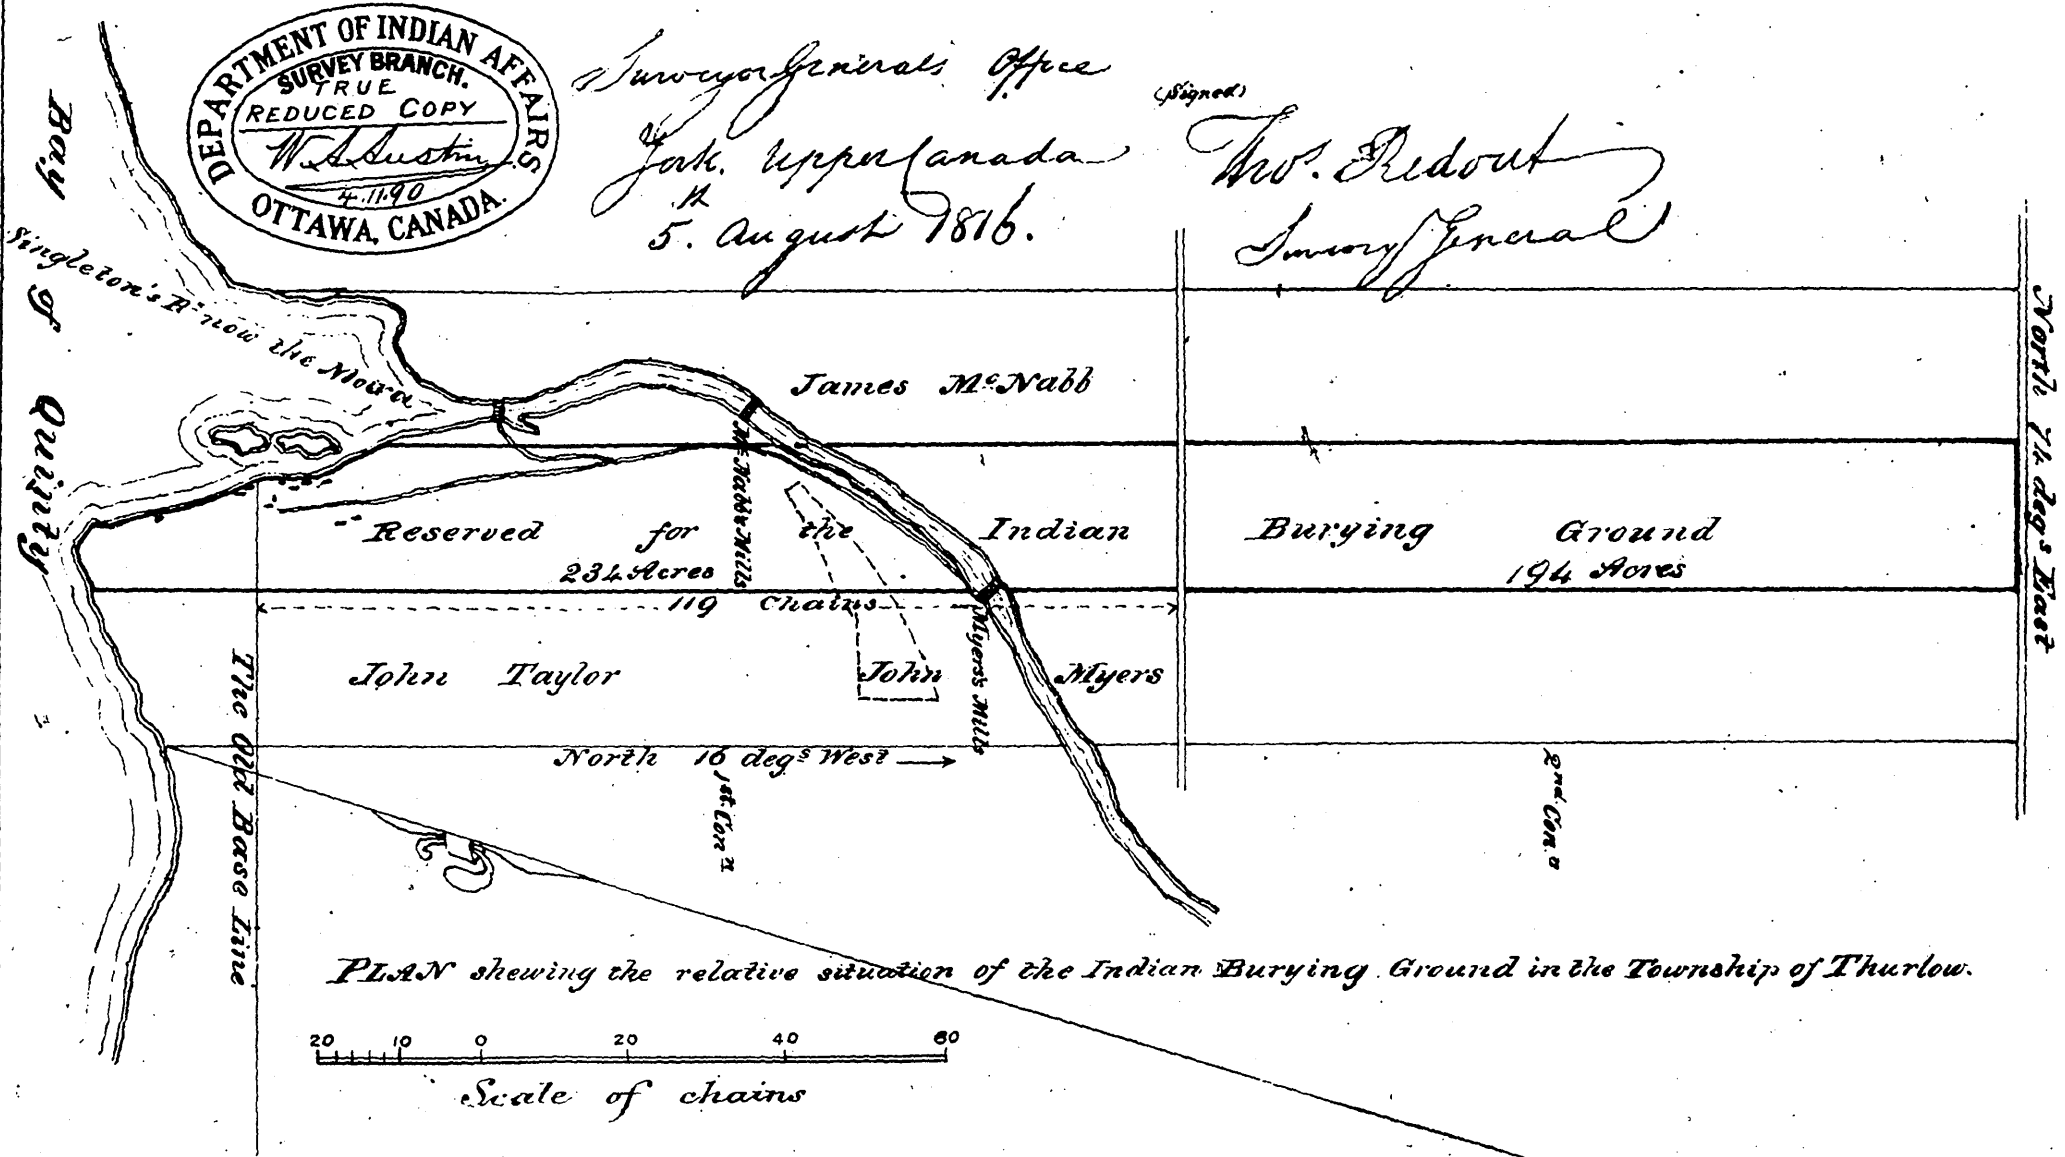 DEPARTMENT OF INDIAN AFFAIRS
SURVEY BRANCH.
TRUE
REDUCED COPY
W A Austin
4.11.90
OTTAWA, CANADA.
Surveyor Generals Office
York. Upper Canada
5.th August 1816.
(Signed)
Thos. Ridout
Survey General
Bay of Quinty
Singleton's Rr now the Moira
James McNabb
McNabb's Mills
Reserved for the Indian Burying Ground
234 Acres
194 Acres
119 Chains
John Taylor
John Myers
Myers's Mills
North 74 degs East
The Old Base Line
North 16 degs West
1st Conn
2nd Conn
PLAN shewing the relative situation of the Indian Burying Ground in the Township of Thurlow.
20 10 0 20 40 60
Scale of chains